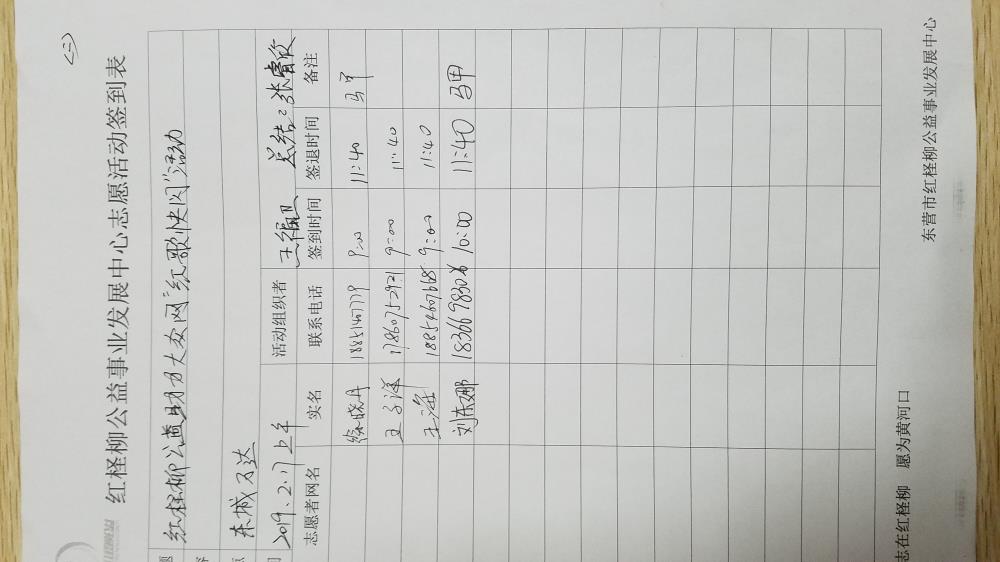 （二）
红柽柳公益事业发展中心志愿活动签到表
题 红柽柳公益助力大众网“红歌快闪”活动
点 东城万达
2019.2.17上午 活动组织者 王福卫 总结：张睿欣
志愿者网名 实名 联系电话 签到时间 签退时间 备注
徐晓丹 9:00 11:40 马甲
王子洋 17860752921 9:00 11:40
王海 18854607668 9:00 11:40
刘东娜 10:00 11:40 马甲
志在红柽柳 愿为黄河口
东营市红柽柳公益事业发展中心